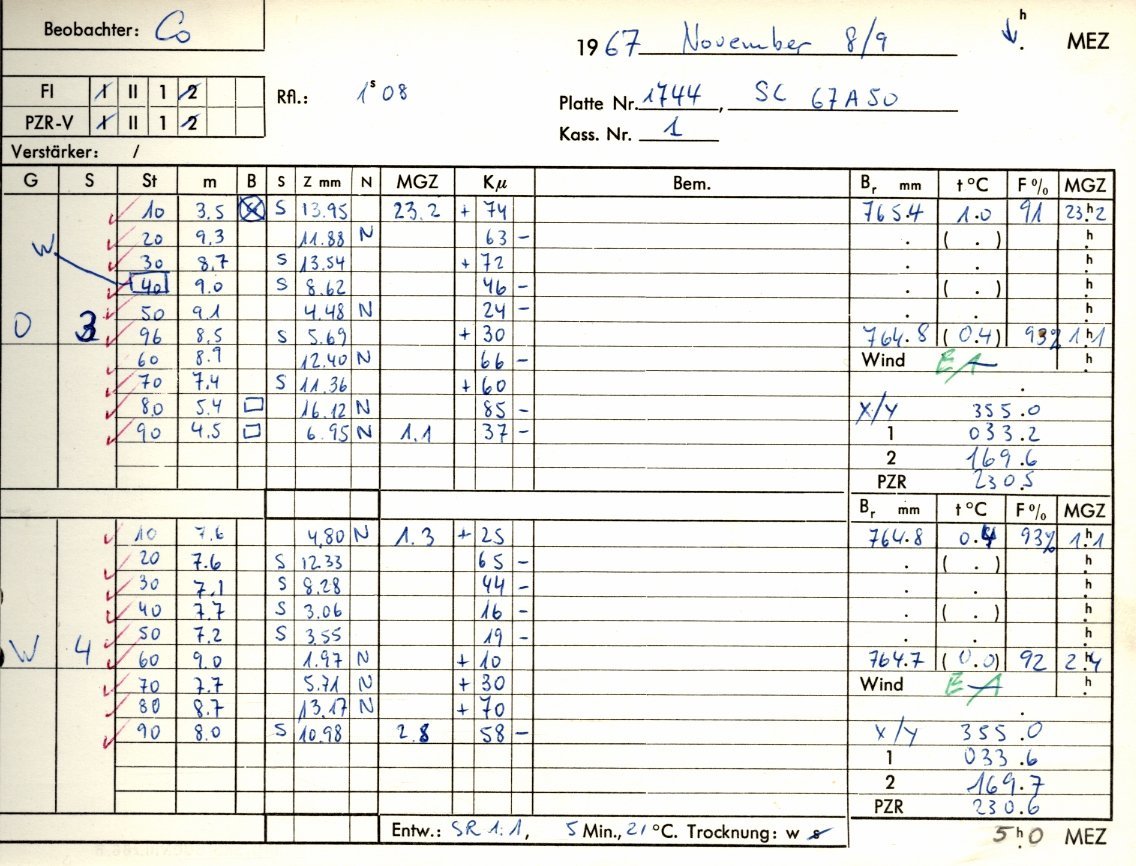 Beobachter: Co
1967 November 8/9 h . MEZ
FI I II 1 2 Rfl.: 1s 08
Platte Nr. 1744, SC 67A50
PZR-V I II 1 2
Kass. Nr. 1
Verstärker: /
G S St m B S Z mm N MGZ Kμ Bem. Br mm t °C F % MGZ
10 3.5 S 13.95 23.2 + 74 765.4 1.0 91 23.h2
20 9.3 11.88 N 63 - . ( . ) h.
W 30 8.7 S 13.54 + 72 . . h.
40 9.0 S 8.62 46 - . ( . ) h.
50 9.1 4.48 N 24 - . . h.
O 3 96 8.5 S 5.69 + 30 764.8 ( 0.4 ) 93% 1.h1
60 8.9 12.40 N 66 - Wind EA h.
70 7.4 S 11.36 + 60 .
80 5.4 16.12 N 85 - X/Y 355.0
90 4.5 6.95 N 1.1 37 - 1 033.2
2 169.6
PZR 230.5
Br mm t °C F % MGZ
10 7.6 4,80 N 1.3 + 25 764.8 0.4 93% 1.h1
20 7.6 S 12.33 65 - . ( . ) h.
30 7.1 S 8.28 44 - . . h.
40 7.7 S 3.06 16 - . ( . ) h.
50 7.2 S 3.55 19 - . . h.
W 4 60 9.0 1.97 N + 10 764.7 ( 0.0 ) 92 2.h4
70 7.7 5.71 N + 30 Wind EA h.
80 8.7 13.17 N + 70 .
90 8.0 S 10.98 2.8 58 - X/Y 355.0
1 033.6
2 169.7
PZR 230.6
Entw.: SR 1:1, 5 Min., 21 °C. Trocknung: w s 5h.0 MEZ